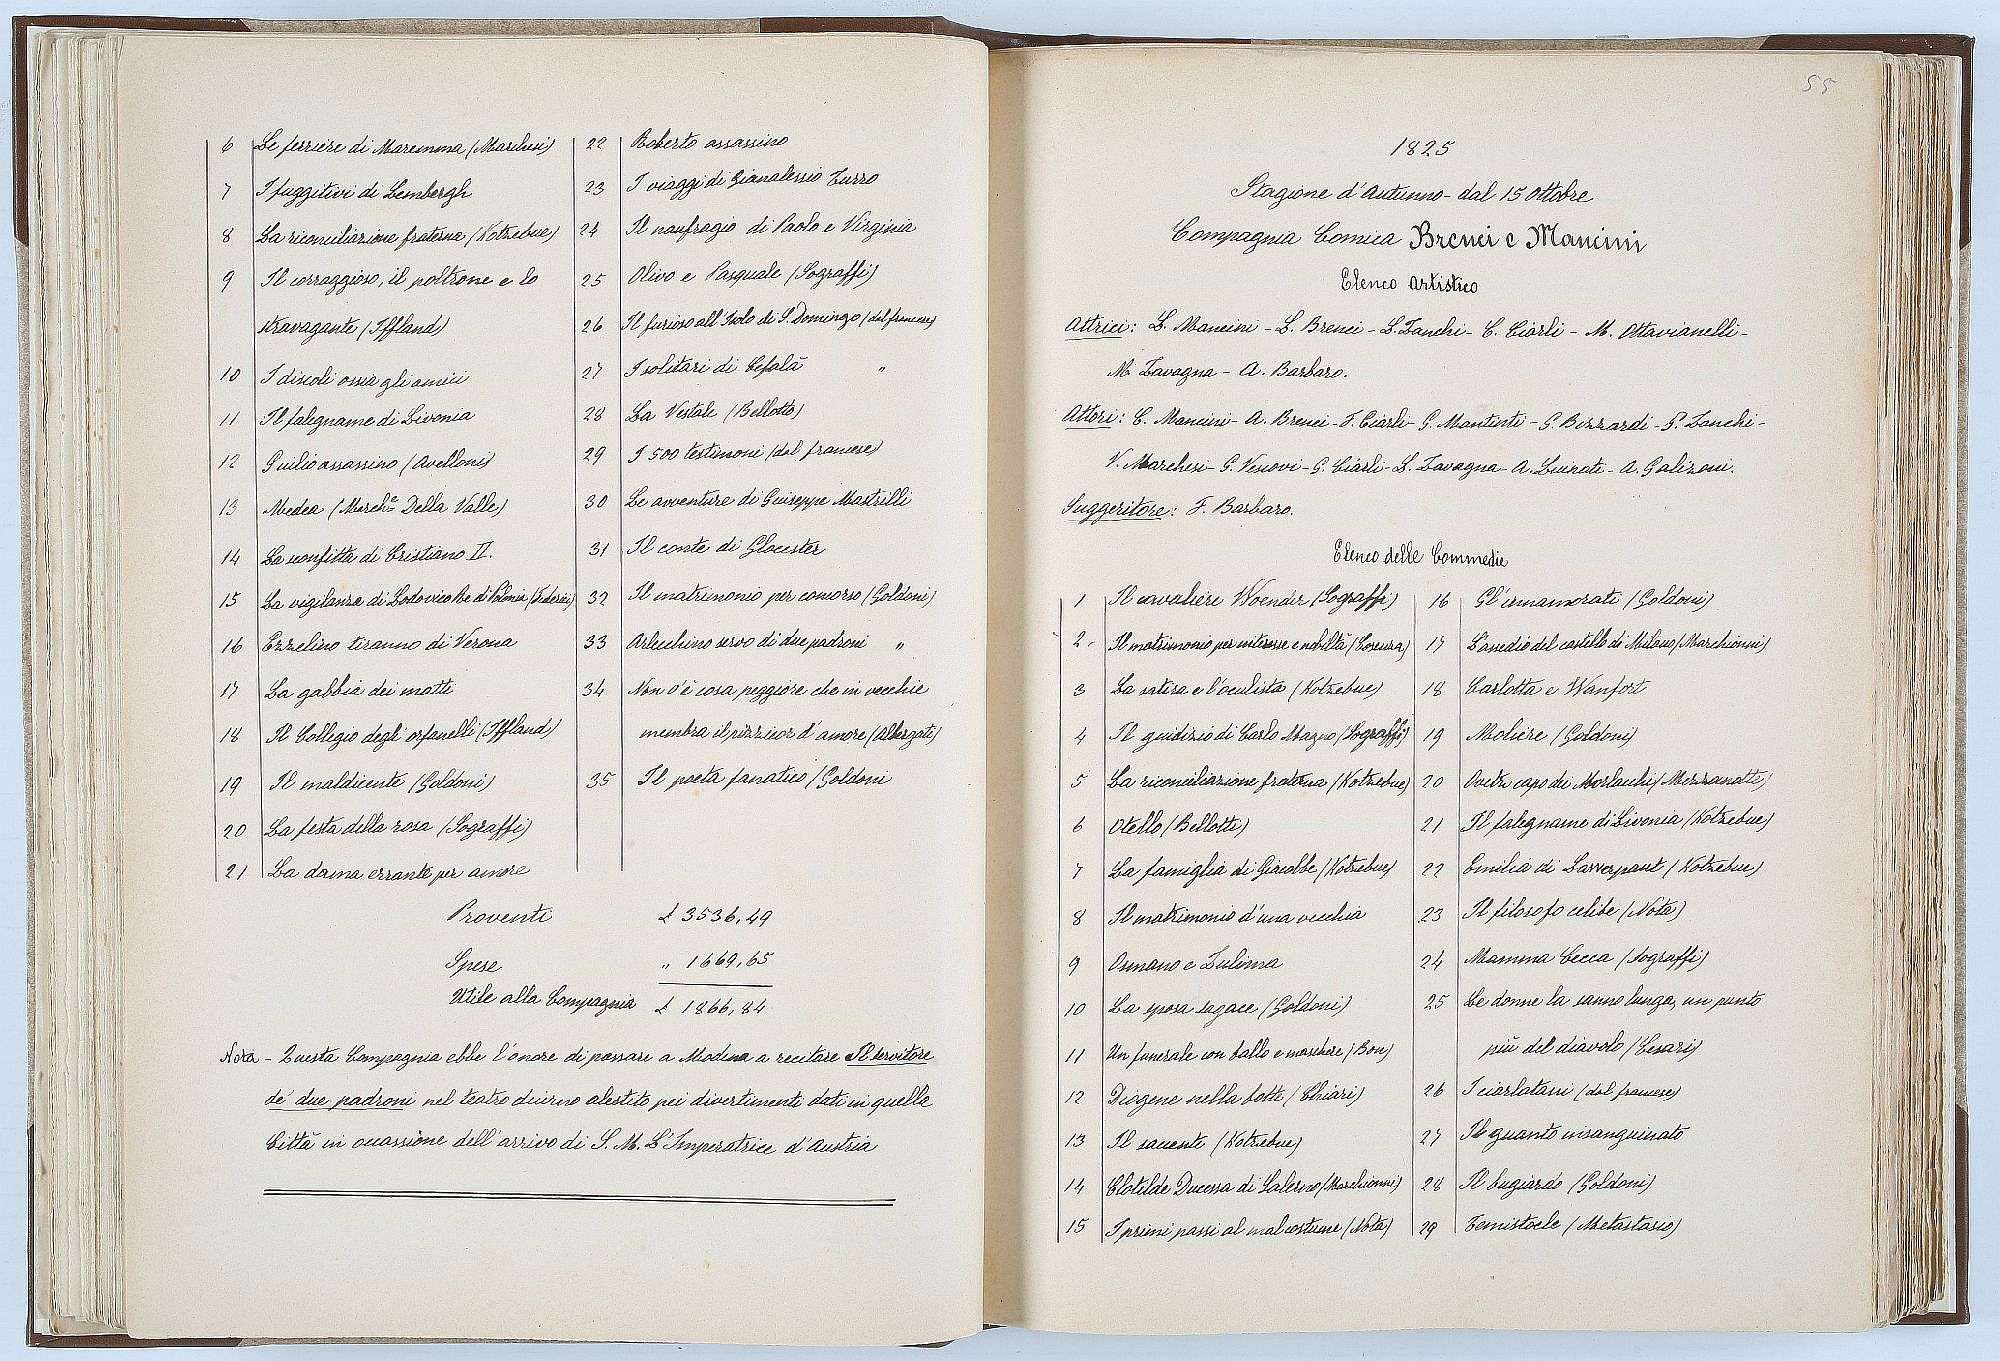 6 Le ferriere di Maremma (Marchesi)
7 I fuggitivi di Lembergh
8 La riconciliazione fraterna (Kotzebue)
9 Il corraggioso, il poltrone e lo
stravagante (Iffland)
10 I discoli ossia gli amici
11 Il falegname di Livonia
12 Giulio assassino (Avelloni)
13 Medea (March.e Della Valle)
14 La sconfitta di Cristiano II.
15 La vigilanza di Lodovico Re di Polonia (Federici)
16 Ezzelino tiranno di Verona
17 La gabbia dei matti
18 Il Collegio degli orfanelli (Iffland)
19 Il maldicente (Goldoni)
20 La festa della rosa (Sograffi)
21 La dama errante per amore
22 Roberto assassino
23 I viaggi di Gianalessio Turro
24 Il naufragio di Paolo e Virginia
25 Olivo e Pasquale (Sograffi)
26 Il furioso all'Isola di S. Domingo (dal francese)
27 I solitari di Cefalù "
28 La Vestale (Bellotto)
29 I 500 testimoni (dal francese)
30 Le avventure di Giuseppe Mastrilli
31 Il conte di Glocester
32 Il matrimonio per concorso (Goldoni)
33 Arlecchino servo di due padroni "
34 Non v'è cosa peggiore che in vecchie
membra il pizzicor d'amore (Albergati)
35 Il poeta fanatico (Goldoni
Proventi £ 3536,49
Spese " 1669,65
Utile alla Compagnia £ 1866,84
Nota - Questa Compagnia ebbe l'onore di passare a Modena a recitare Il servitore
de' due padroni nel teatro diurno alestito pei divertimenti dati in quella
Città in occassione dell'arrivo di S. M. L'Imperatrice d'Austria
55
1825
Stagione d'Autunno - dal 15 Ottobre
Compagnia Comica Brenci e Mancini
Elenco Artistico
Attrici: L. Mancini - L. Brenci - L. Zanchi - C. Ciarli - M. Ottavianelli -
M. Zavagna - A. Barbaro.
Attori: C. Mancini - A. Brenci - F. Ciarli - G. Mantinti - G. Bizzardi - P. Zanchi -
V. Marchesi - G. Vescovi - G. Ciarli - L. Zavagna - A. Luinati - A. Galizoni.
Suggeritore: F. Barbaro.
Elenco delle Commedie
1 Il cavaliere Woender (Sograffi)
2 Il matrimonio per interesse e nobiltà
3 La satira e l'oculista (Kotzebue)
4 Il giudizio di Carlo Magno (Sograffi)
5 La riconciliazione fraterna (Kotzebue)
6 Otello (Bellotti)
7 La famiglia di Giacobbe (Kotzebue)
8 Il matrimonio d'una vecchia
9 Osmano e Zulima
10 La sposa sagace (Goldoni)
11 Un funerale con ballo e maschere (Bon)
12 Diogene nella botte (Chiari)
13 Il saccente (Kotzebue)
14 Clotilde Ducessa di Salerno (Marchionni)
15 I primi passi al mal costume (Nota)
16 Gl'innamorati (Goldoni)
17 L'assedio del castello di Milano (Marchionni)
18 Carlotta e Wanfort
19 Moliere (Goldoni)
20 capo dei Morlacchi (Mezzanotte)
21 Il falegname di Livonia (Kotzebue)
22 Emilia di Lawerpaut (Kotzebue)
23 Il filosofo celibe (Nota)
24 Mamma Cecca (Sograffi)
25 Le donne la sanno lunga, un punto
più del diavolo (Cesari)
26 I ciarlatani (dal francese)
27 Il guanto insanguinato
28 Il bugiardo (Goldoni)
29 Temistocle (Metastasio)